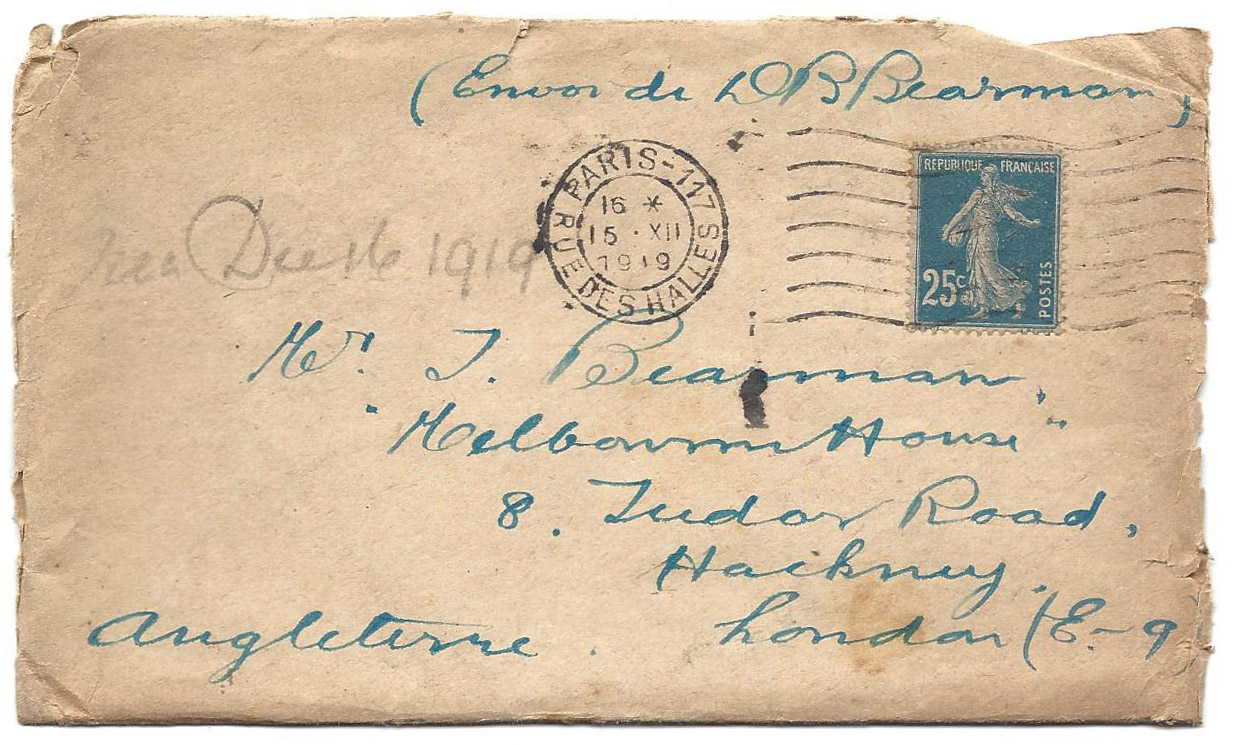 (Envoi de D B Bearman)
PARIS-117
16 *
15 · XII
1919
RUE DES HALLES
REPUBLIQUE FRANÇAISE
25c
POSTES
Dec 16 1919
Mr. J. Bearman,
"Melbourne House"
8. Tudor Road,
Hackney.
London (E-9)
Angleterre.